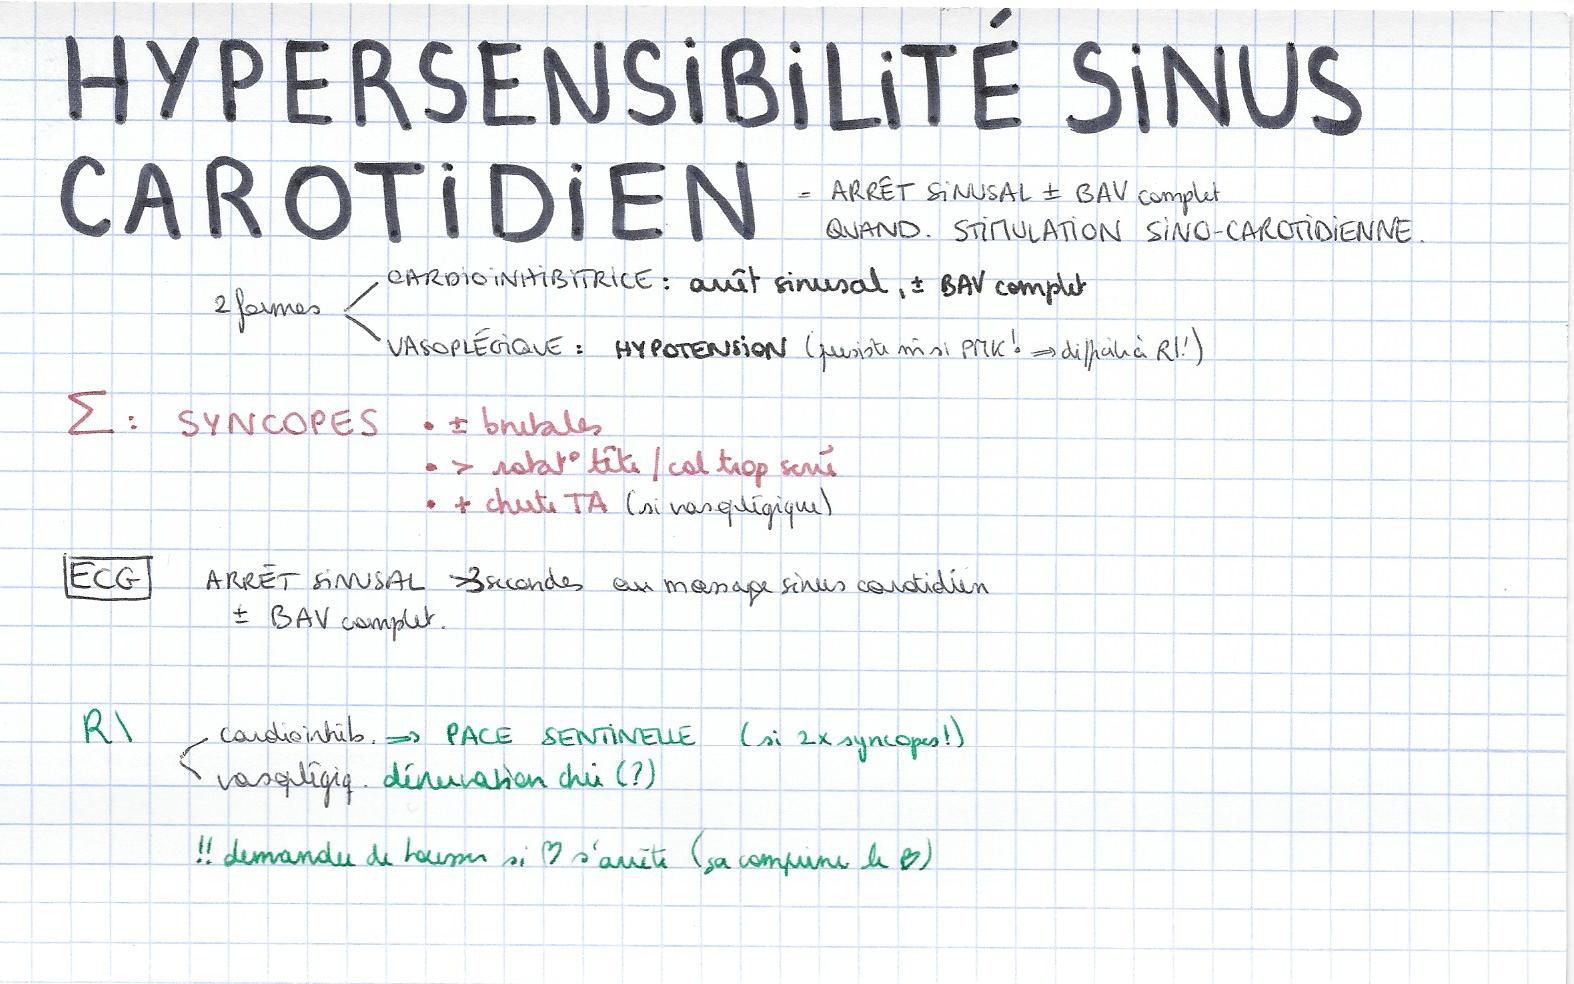 HYPERSENSIBILITÉ SINUS
CAROTIDIEN = ARRÊT SINUSAL ± BAV complet
QUAND. STIMULATION SINO-CAROTIDIENNE.
2 formes
CARDIOINHIBITRICE : arrêt sinusal, ± BAV complet
VASOPLÉGIQUE : HYPOTENSION (persiste m̂ si PMK! ⇒ difficile à R\!)
Σ : SYNCOPES • ± brutales
• > rotat° tête / col trop serré
• + chute TA (si vasoplégique)
ECG ARRÊT SINUSAL >3 secondes au massage sinus carotidien
± BAV complet.
R\ cardioinhib. ⇒ PACE SENTINELLE (si 2x syncopes!)
vasoplégiq. dénervation chir (?)
!! demander de tousser si ♡ s'arrête (ça comprime le ♡)